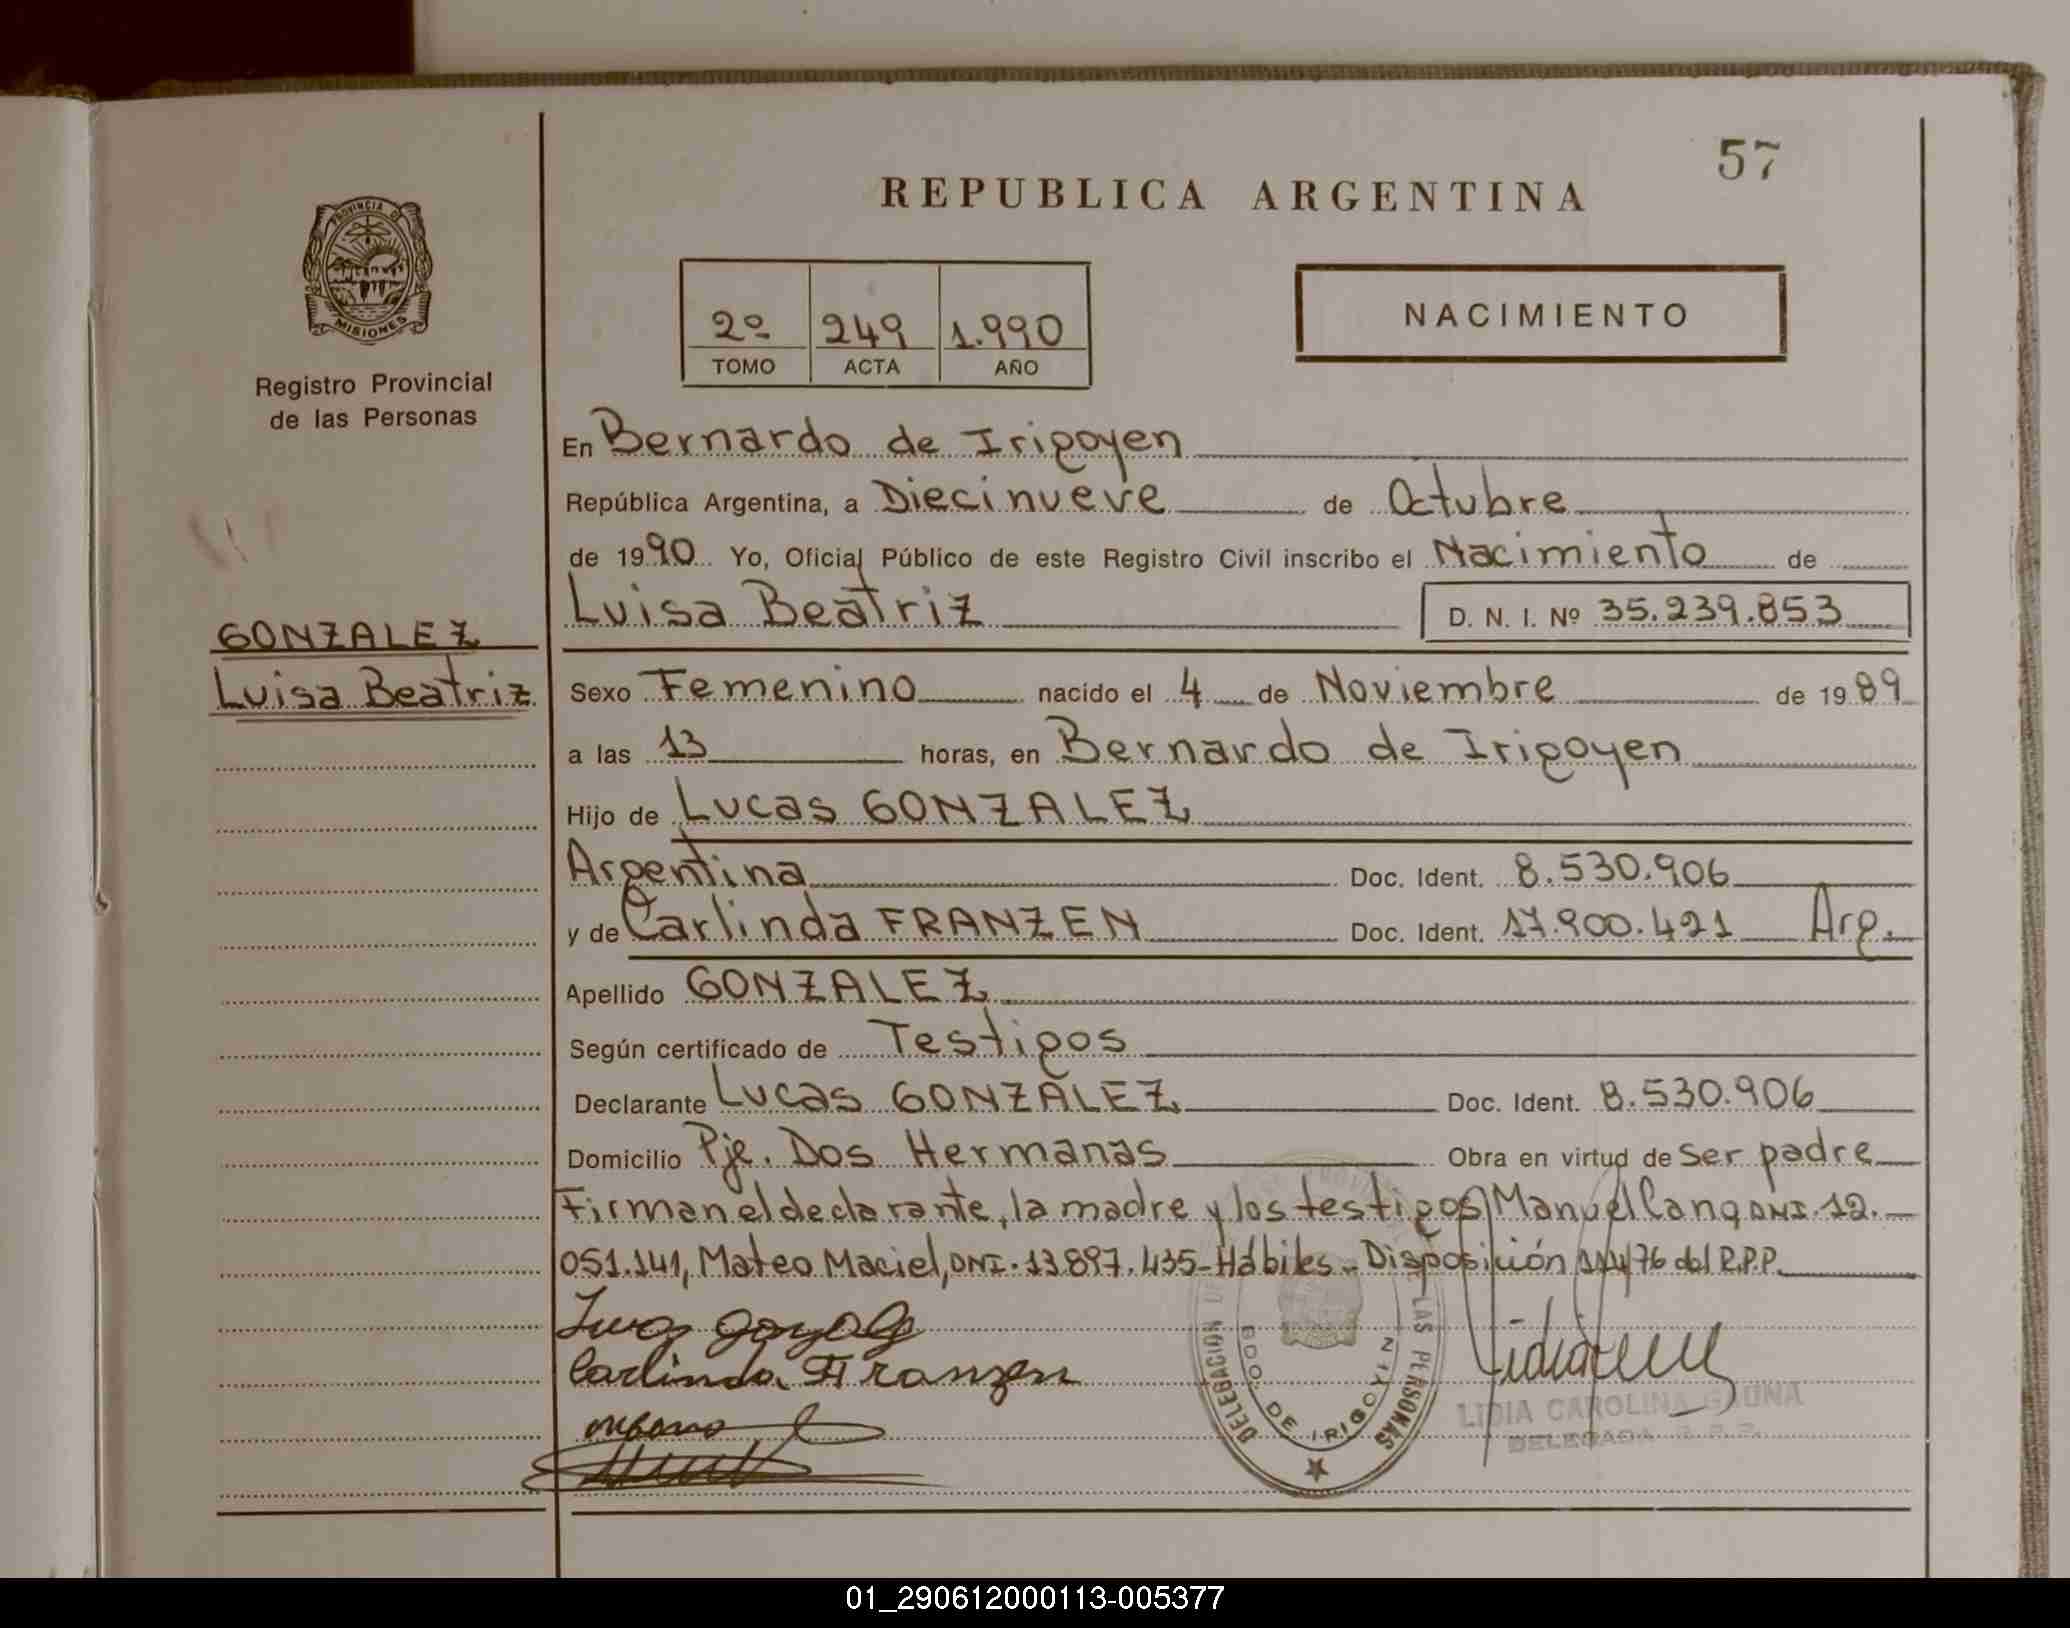 57
REPUBLICA ARGENTINA
PROVINCIA DE
MISIONES
Registro Provincial
de las Personas
2º 249 1.990
TOMO ACTA AÑO
NACIMIENTO
En Bernardo de Irigoyen
República Argentina, a Diecinueve de Octubre
de 1990 Yo, Oficial Público de este Registro Civil inscribo el Nacimiento de
Luisa Beatriz D. N. I. Nº 35.239.853
GONZALEZ
Luisa Beatriz
Sexo Femenino nacido el 4 de Noviembre de 1989
a las 13 horas, en Bernardo de Irigoyen
Hijo de Lucas GONZALEZ
Argentina Doc. Ident. 8.530.906
y de Carlinda FRANZEN Doc. Ident. 17.900.421 Arg.
Apellido GONZALEZ
Según certificado de Testigos
Declarante Lucas GONZALEZ Doc. Ident. 8.530.906
Domicilio Pje. Dos Hermanas Obra en virtud de ser padre
Firman el declarante, la madre y los testigos Manuel DNI. 12.
051.141, Mateo Maciel, DNI. 13897.435-Hábiles.- Disposición 114/76 del R.P.P.
Carlinda Franzen
DELEGACION DE LAS PERSONAS
BDO. DE IRIGOYEN
LIDIA CAROLINA GAUNA
DELEGADA R. P. P.
01_290612000113-005377